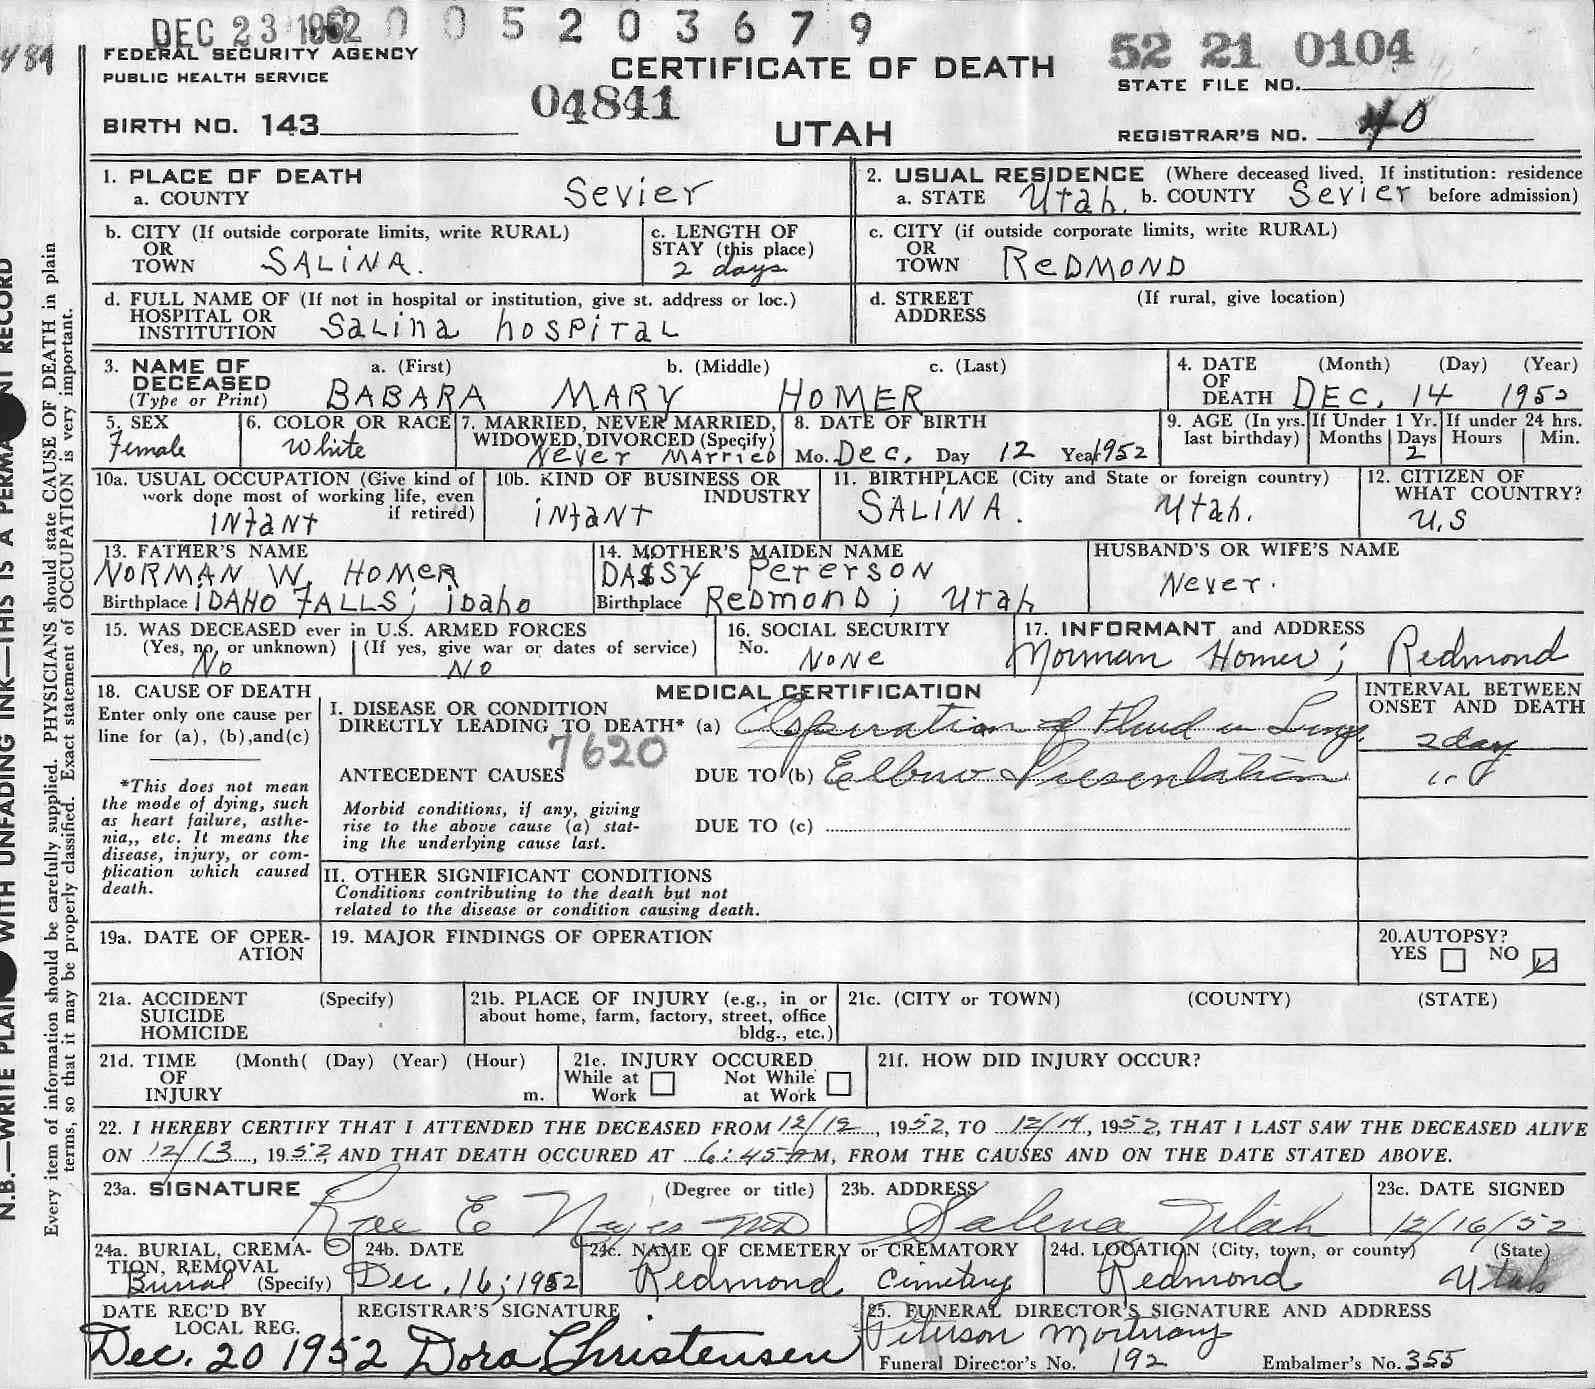 DEC 23 1952 0 0 5 2 0 3 6 7 9
FEDERAL SECURITY AGENCY
PUBLIC HEALTH SERVICE
CERTIFICATE OF DEATH
52 21 0104
STATE FILE NO.
04841
BIRTH NO. 143
UTAH
REGISTRAR'S NO. 40
1. PLACE OF DEATH
a. COUNTY Sevier
2. USUAL RESIDENCE (Where deceased lived. If institution: residence
a. STATE Utah. b. COUNTY Sevier before admission)
b. CITY (If outside corporate limits, write RURAL)
OR
TOWN SALINA.
c. LENGTH OF
STAY (this place)
2 days
c. CITY (if outside corporate limits, write RURAL)
OR
TOWN REDMOND
d. FULL NAME OF (If not in hospital or institution, give st. address or loc.)
HOSPITAL OR
INSTITUTION Salina hospital
d. STREET (If rural, give location)
ADDRESS
3. NAME OF
DECEASED
(Type or Print)
a. (First) b. (Middle) c. (Last)
BABARA MARY HOMER
4. DATE (Month) (Day) (Year)
OF
DEATH DEC. 14 1952
5. SEX
Female
6. COLOR OR RACE
White
7. MARRIED, NEVER MARRIED,
WIDOWED, DIVORCED (Specify)
Never Married
8. DATE OF BIRTH
Mo. Dec. Day 12 Year 1952
9. AGE (In yrs. last birthday)
If Under 1 Yr. Months Days 2
If under 24 hrs. Hours Min.
10a. USUAL OCCUPATION (Give kind of
work done most of working life, even
if retired)
infant
10b. KIND OF BUSINESS OR
INDUSTRY
infant
11. BIRTHPLACE (City and State or foreign country)
SALINA. Utah.
12. CITIZEN OF
WHAT COUNTRY?
U.S
13. FATHER'S NAME
NORMAN W. HOMER
Birthplace IDAHO FALLS; idaho
14. MOTHER'S MAIDEN NAME
DAISSY PETERSON
Birthplace Redmond; Utah
HUSBAND'S OR WIFE'S NAME
Never.
15. WAS DECEASED ever in U.S. ARMED FORCES
(Yes, no, or unknown) (If yes, give war or dates of service)
No No
16. SOCIAL SECURITY
No. None
17. INFORMANT and ADDRESS
Norman Homer; Redmond
18. CAUSE OF DEATH
Enter only one cause per
line for (a), (b),and(c)
*This does not mean
the mode of dying, such
as heart failure, asthe-
nia,, etc. It means the
disease, injury, or com-
plication which caused
death.
MEDICAL CERTIFICATION
I. DISEASE OR CONDITION
DIRECTLY LEADING TO DEATH* (a) Asperation of Fluid in Lung
7620
ANTECEDENT CAUSES DUE TO (b) Elbow Presentation
Morbid conditions, if any, giving
rise to the above cause (a) stat-
ing the underlying cause last.
DUE TO (c)
INTERVAL BETWEEN
ONSET AND DEATH
2 day
" "
II. OTHER SIGNIFICANT CONDITIONS
Conditions contributing to the death but not
related to the disease or condition causing death.
19a. DATE OF OPER-
ATION
19. MAJOR FINDINGS OF OPERATION
20.AUTOPSY?
YES NO
21a. ACCIDENT (Specify)
SUICIDE
HOMICIDE
21b. PLACE OF INJURY (e.g., in or
about home, farm, factory, street, office
bldg., etc.)
21c. (CITY or TOWN) (COUNTY) (STATE)
21d. TIME (Month( (Day) (Year) (Hour)
OF
INJURY m.
21e. INJURY OCCURED
While at Work
Not While at Work
21f. HOW DID INJURY OCCUR?
22. I HEREBY CERTIFY THAT I ATTENDED THE DECEASED FROM 12/12, 1952, TO 12/14, 1952, THAT I LAST SAW THE DECEASED ALIVE
ON 12/13, 1952, AND THAT DEATH OCCURED AT 6:45 AM, FROM THE CAUSES AND ON THE DATE STATED ABOVE.
23a. SIGNATURE (Degree or title)
Rae E Noyes MD
23b. ADDRESS
Salina Utah
23c. DATE SIGNED
12/16/52
24a. BURIAL, CREMA-
TION, REMOVAL
Burial (Specify)
24b. DATE
Dec. 16, 1952
23c. NAME OF CEMETERY or CREMATORY
Redmond Cimetery
24d. LOCATION (City, town, or county) (State)
Redmond Utah
DATE REC'D BY
LOCAL REG.
Dec. 20 1952
REGISTRAR'S SIGNATURE
Dora Christensen
25. FUNERAL DIRECTOR'S SIGNATURE AND ADDRESS
Peterson Mortuary
Funeral Director's No. 192 Embalmer's No. 355
Every item of information should be carefully supplied. PHYSICIANS should state CAUSE OF DEATH in plain
terms, so that it may be properly classified. Exact statement of OCCUPATION is very important.